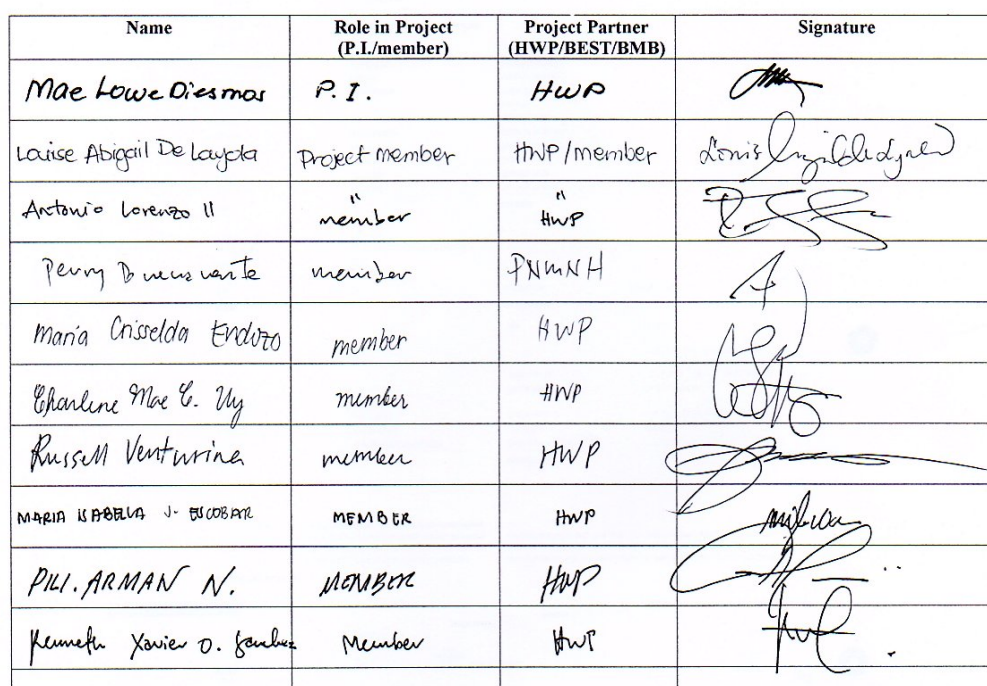 Name Role in Project (P.I./member) Project Partner (HWP/BEST/BMB) Signature
Mae Lowe Diesmos P.I. HWP
Louise Abigail De Layola Project member HWP/member
Antonio Lorenzo II " member " HWP
Perry Buenavente member PNMNH
Maria Crisselda Enduzo member HWP
Charlene Mae C. Uy member HWP
Russell Venturina member HWP
MARIA ISABELLA J. ESCOBAR MEMBER HWP
PILI. ARMAN N. MEMBER HWP
Kenneth Xavier O. Member HWP